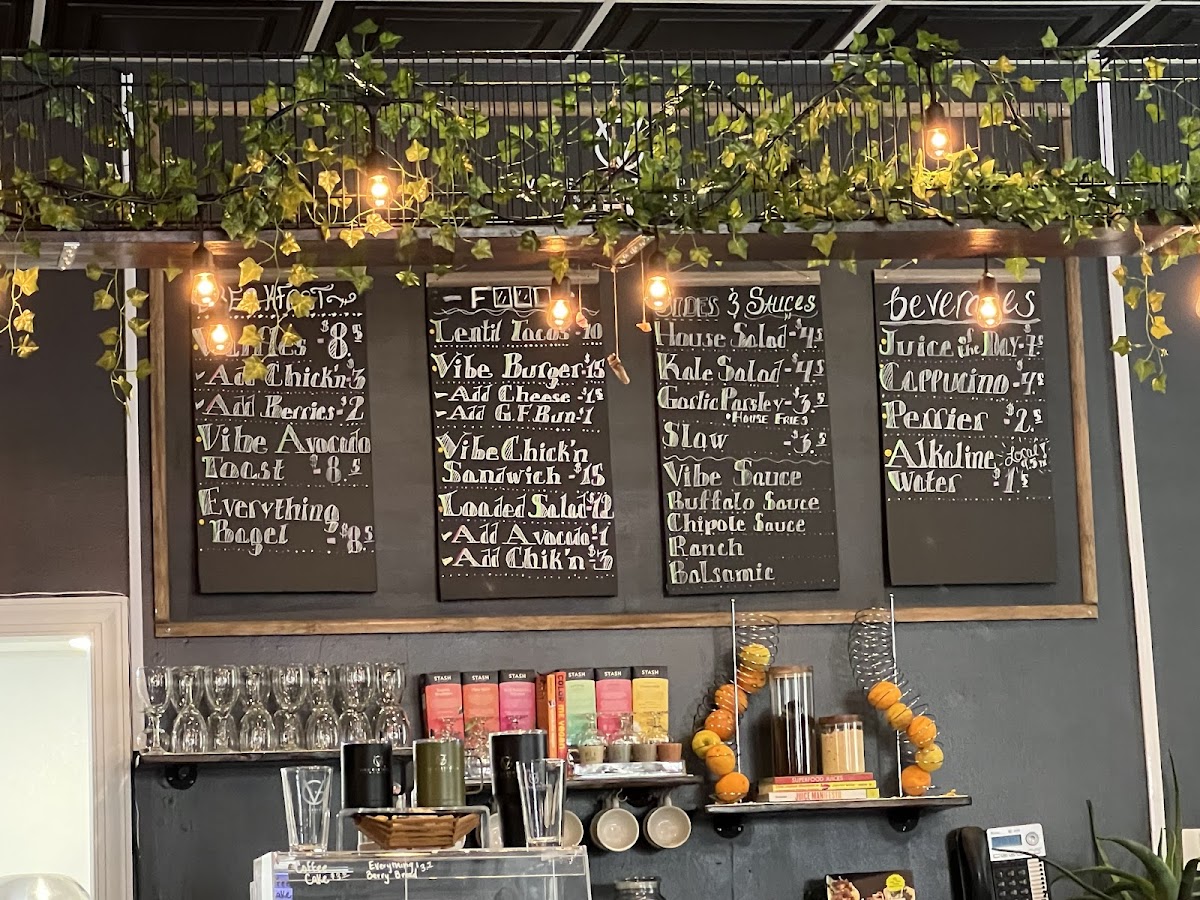 Waffles - $8.5
- Add Chick'n - $3
- Add Berries - $2
Vibe Avocado
Toast - $8.5
Everything
Bagel - $8.5
- FOOD
Lentil Tacos - 10
Vibe Burger - 15
- Add Cheese - $1.5
- Add G.F. Bun - $1
Vibe Chick'n
Sandwich - $15
Loaded Salad - $12
- Add Avocado - $1
- Add Chik'n - $3
SIDES & SAUCES
House Salad - $4.5
Kale Salad - $4.5
Garlic Parsley - $3.5
• HOUSE FRIES
Slaw - $3.5
Vibe Sauce
Buffalo Sauce
Chipole Sauce
Ranch
Balsamic
beverages
Juice of the Day - 7.5
Cappucino - $4.5
Perrier - $2.5
Alkaline
Water - $1.5
STASH
STASH
STASH
STASH
STASH
STASH
COLOR ME
SUPERFOOD JUICES
JUICE MANIFESTO
Coffee
Cake
Everything
Berry Bread